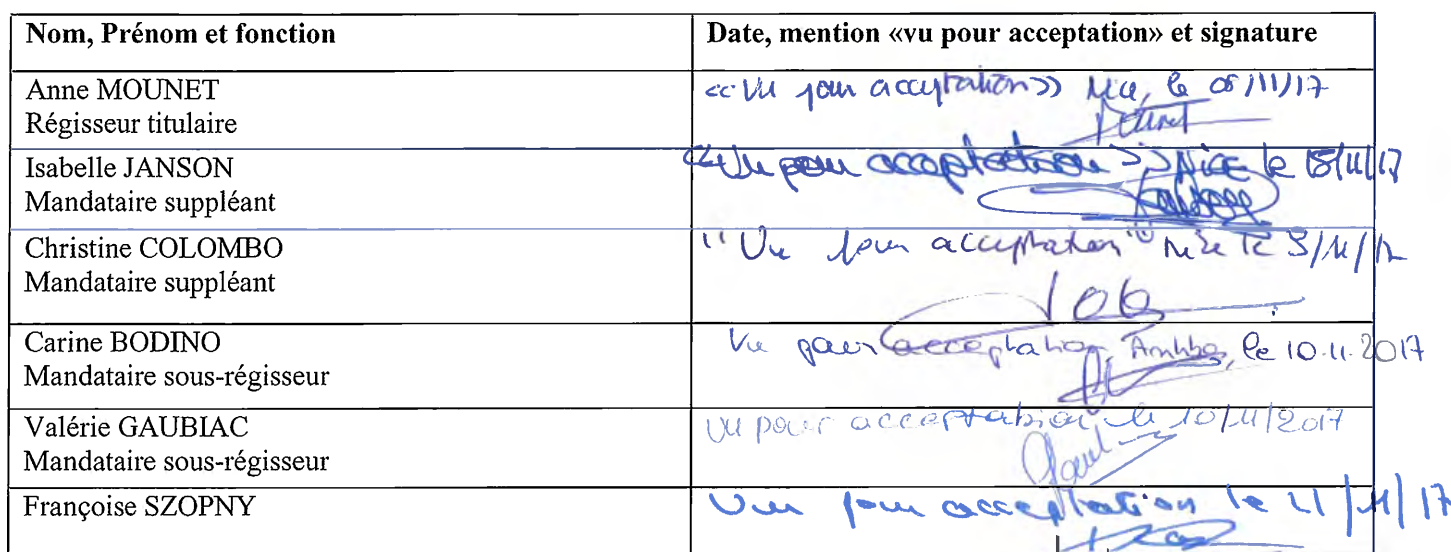 Nom, Prénom et fonction
Date, mention «vu pour acceptation» et signature
Anne MOUNET
Régisseur titulaire
«Vu pour acceptation» Nice, le /11/17
Isabelle JANSON
Mandataire suppléant
«Vu pour acceptation» Nice le /11/17
Christine COLOMBO
Mandataire suppléant
"Vu pour acceptation" Nice le /11/17
Carine BODINO
Mandataire sous-régisseur
Vu pour acceptation, Antibes, le 10.11.2017
Valérie GAUBIAC
Mandataire sous-régisseur
Vu pour acceptation, le 10/11/2017
Françoise SZOPNY
Vu pour acceptation le /11/17